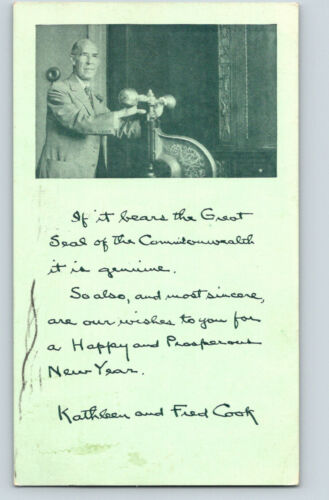 If it bears the Great
Seal of the Commonwealth
it is genuine.
So also, and most sincere,
are our wishes to you for
a Happy and Prosperous
New Year.
Kathleen and Fred Cook